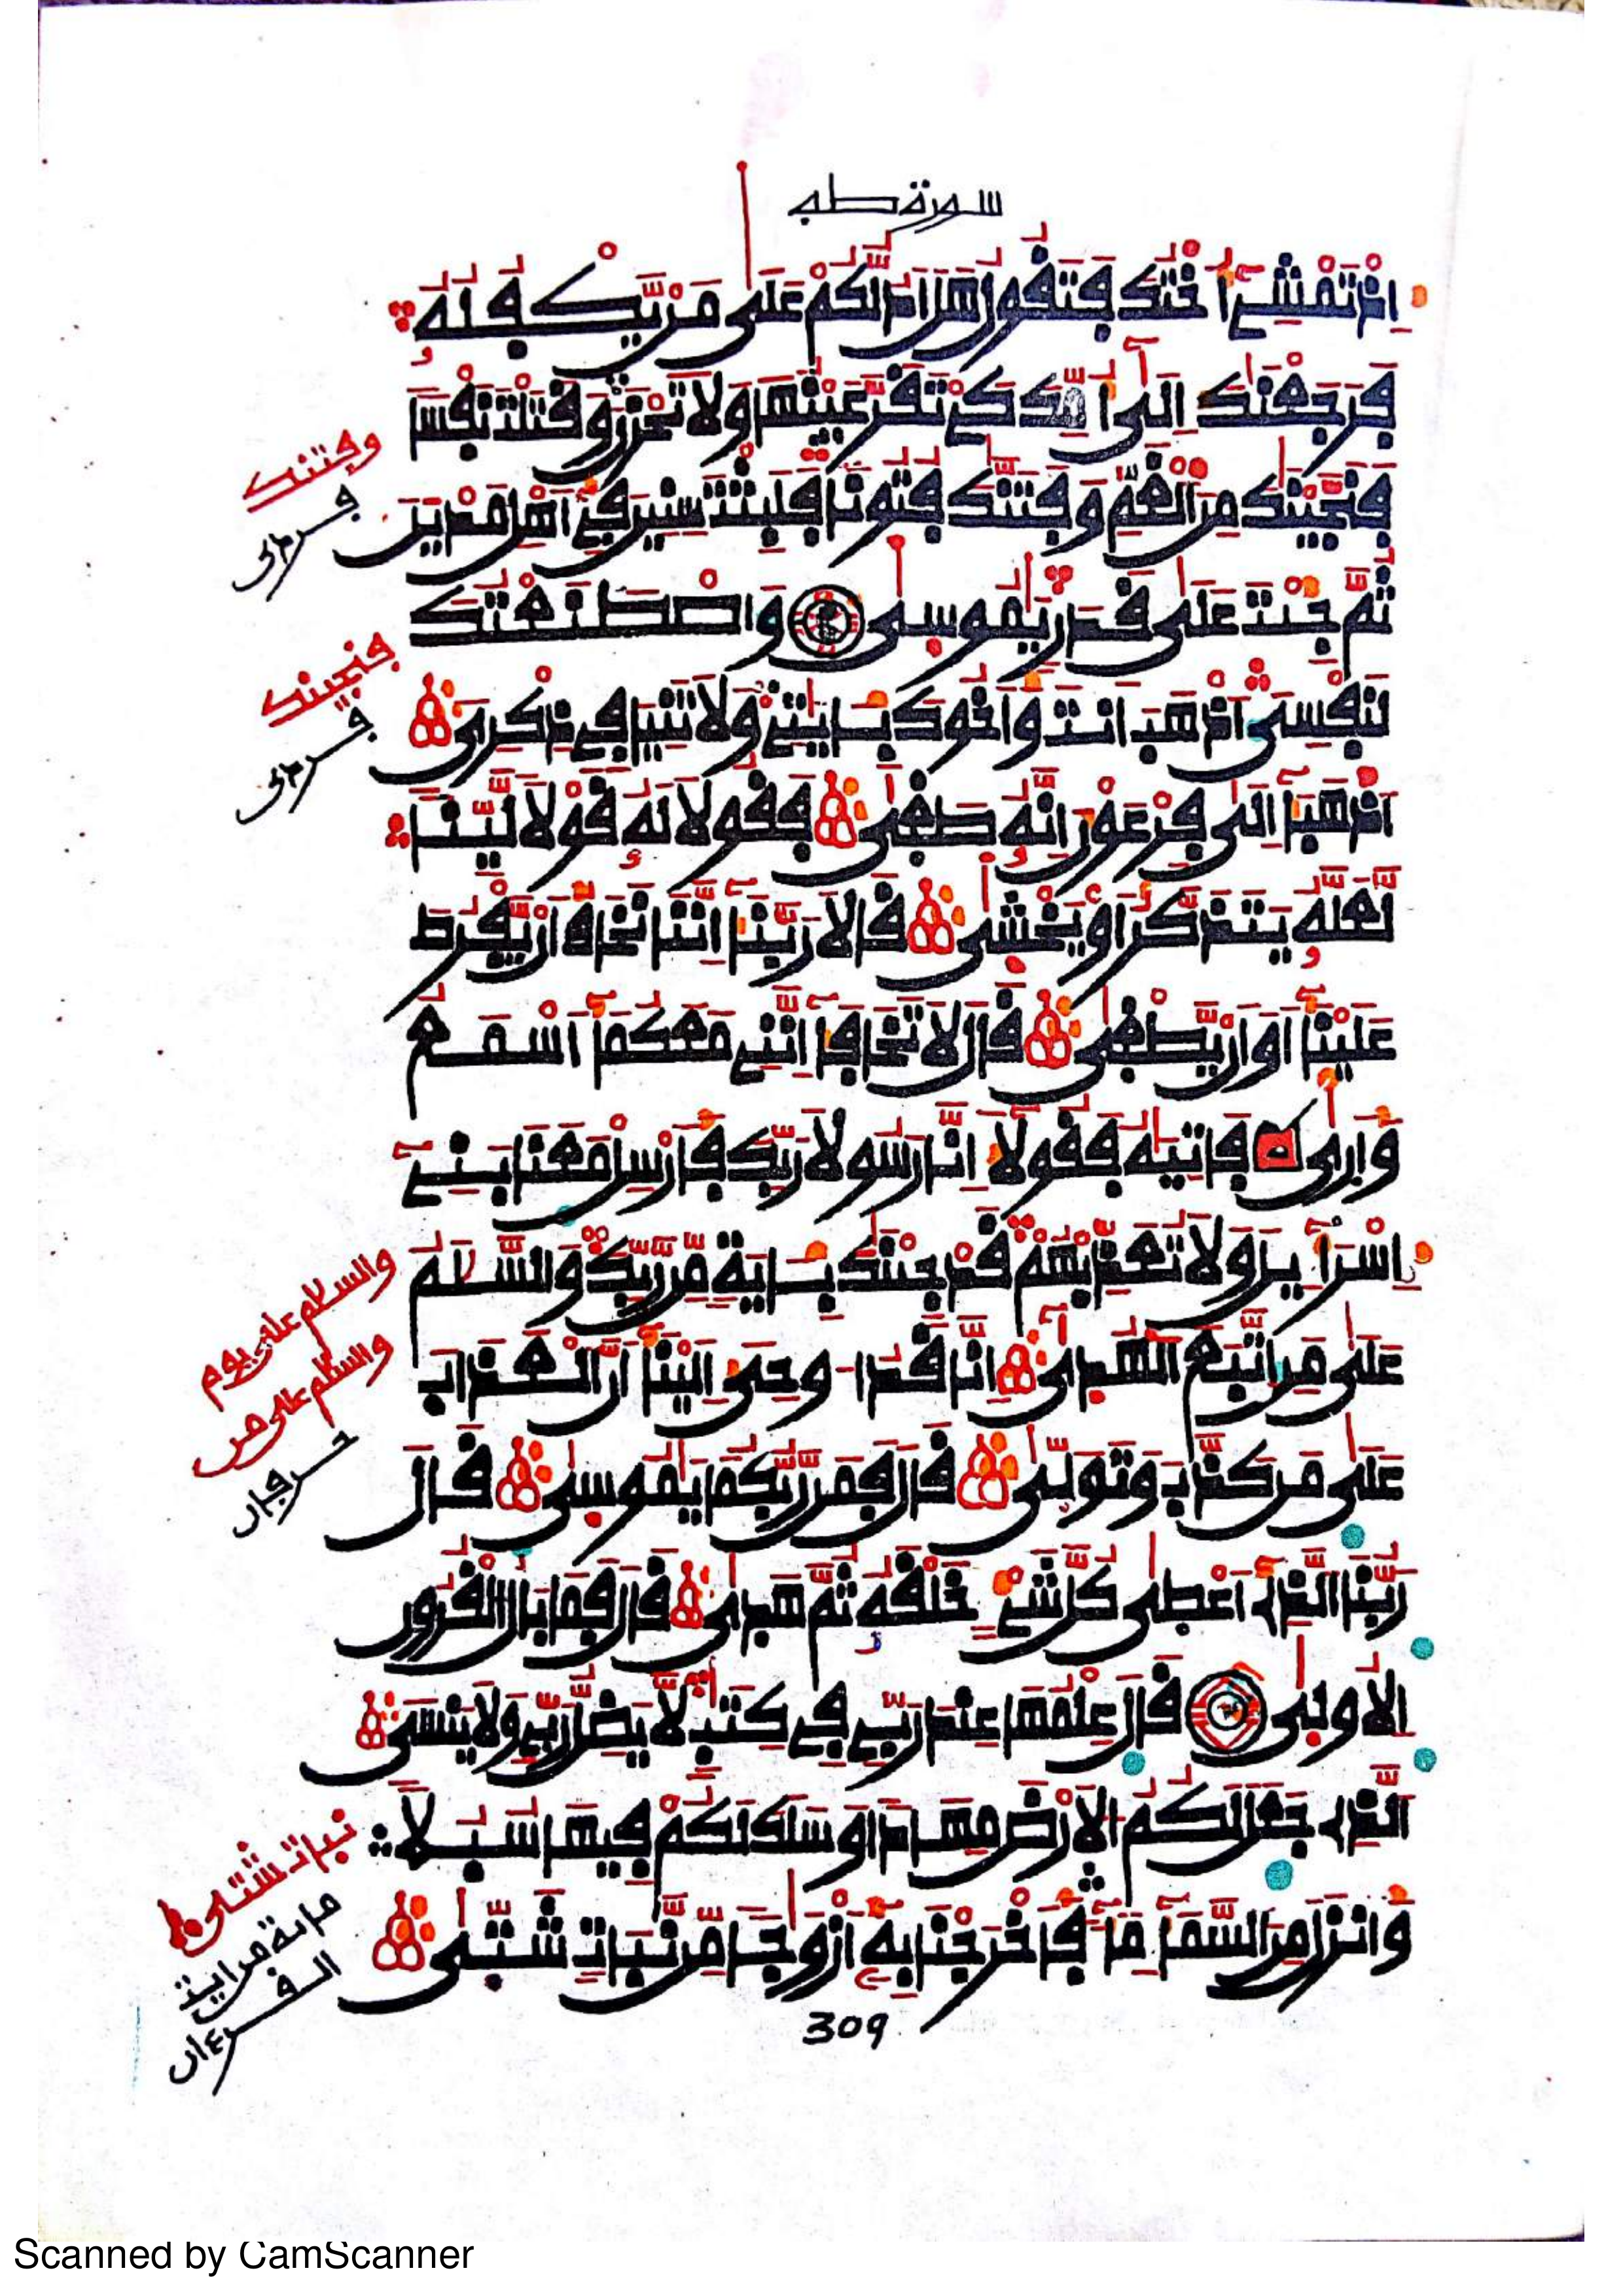 سورة طه
إِذْ تَمْشِے أُخْتُكَ فَتَقُولُ هَلَ اَدُلُّكُمْ عَلَى مَنْ يَّكْفُلُهُ
فَرَجَعْنَكَ إِلَى أُمِّكَ كَےْ تَقَرَّ عَيْنُهَا وَلَا تَحْزَنَ وَقَتَلْتَ نَفْسًا
فَنَجَّيْنَكَ مِنَ الْغَمِّ وَفَتَنَّكَ فُتُونًا فَلَبِثْتَ سِنِينَ فِے أَهْلِ مَدْيَنَ
ثُمَّ جِئْتَ عَلَى قَدَرٍ يَمُوسِى وَاصْطَنَعْتُكَ
لِنَفْسِى اَذْهَبَ اَنتَ وَأَخُوكَ بِـَٔايَتِے وَلَا تَنِيَا فِے ذِكْرِى
اَذْهَبَا إِلَى فِرْعَوْنَ إِنَّهُ طَغَى فَقُولَا لَهُ قَوْلًا لَّيِّنًا
لَّعَلَّهُ يَتَذَكَّرُ أَوْ يَخْشَى قَالَا رَبَّنَا إِنَّنَا نَخَافُ أَنْ يَّفْرُطَ
عَلَيْنَا أَوْ أَنْ يَّطْغَى قَالَ لَا تَخَافَا إِنَّنِے مَعَكُمَا أَسْمَعُ
وَأَرَى فَاتِيَهُ فَقُولَا إِنَّا رَسُولَا رَبِّكَ فَأَرْسِلْ مَعَنَا بَنِے
إِسْرَآءِيلَ وَلَا تُعَذِّبْهُمْ قَدْ جِئْنَكَ بِـَٔايَةٍ مِّن رَّبِّكَ وَالسَّلَمُ
عَلَى مَنِ اتَّبَعَ الْهُدَى إِنَّا قَدُ ا وحِىَ إِلَيْنَا أَنَّ الْعَذَابَ
عَلَى مَن كَذَّبَ وَتَوَلَّى قَالَ فَمَن رَّبُّكُمَا يَمُوسِى قَالَ
رَبُّنَا الَّذِے أَعْطَى كُلَّ شَےْءٍ خَلْقَهُ ثُمَّ هَدَى قَالَ فَمَا بَالُ الْقُرُونِ
الُاولَى قَالَ عِلْمُهَا عِندَ رَبِّے فِے كِتَبٍ لَّا يَضِلُّ رَبِّے وَلَا يَنسَى
الَّذِے جَعَلَ لَكُمُ الَارْضَ مِهَدًا وَسَلَكَ لَكُمْ فِيهَا سُبُلًا
وَأَنزَلَ مِنَ السَّمَآءِ مَآءً فَأَخْرَجْنَا بِهِ أَزْوَجًا مِّن نَّبَاتٍ شَتَّى
309
وفتنك
فنجينك
والسلام على يوم
والسلام على من
نبات شتى
Scanned by CamScanner